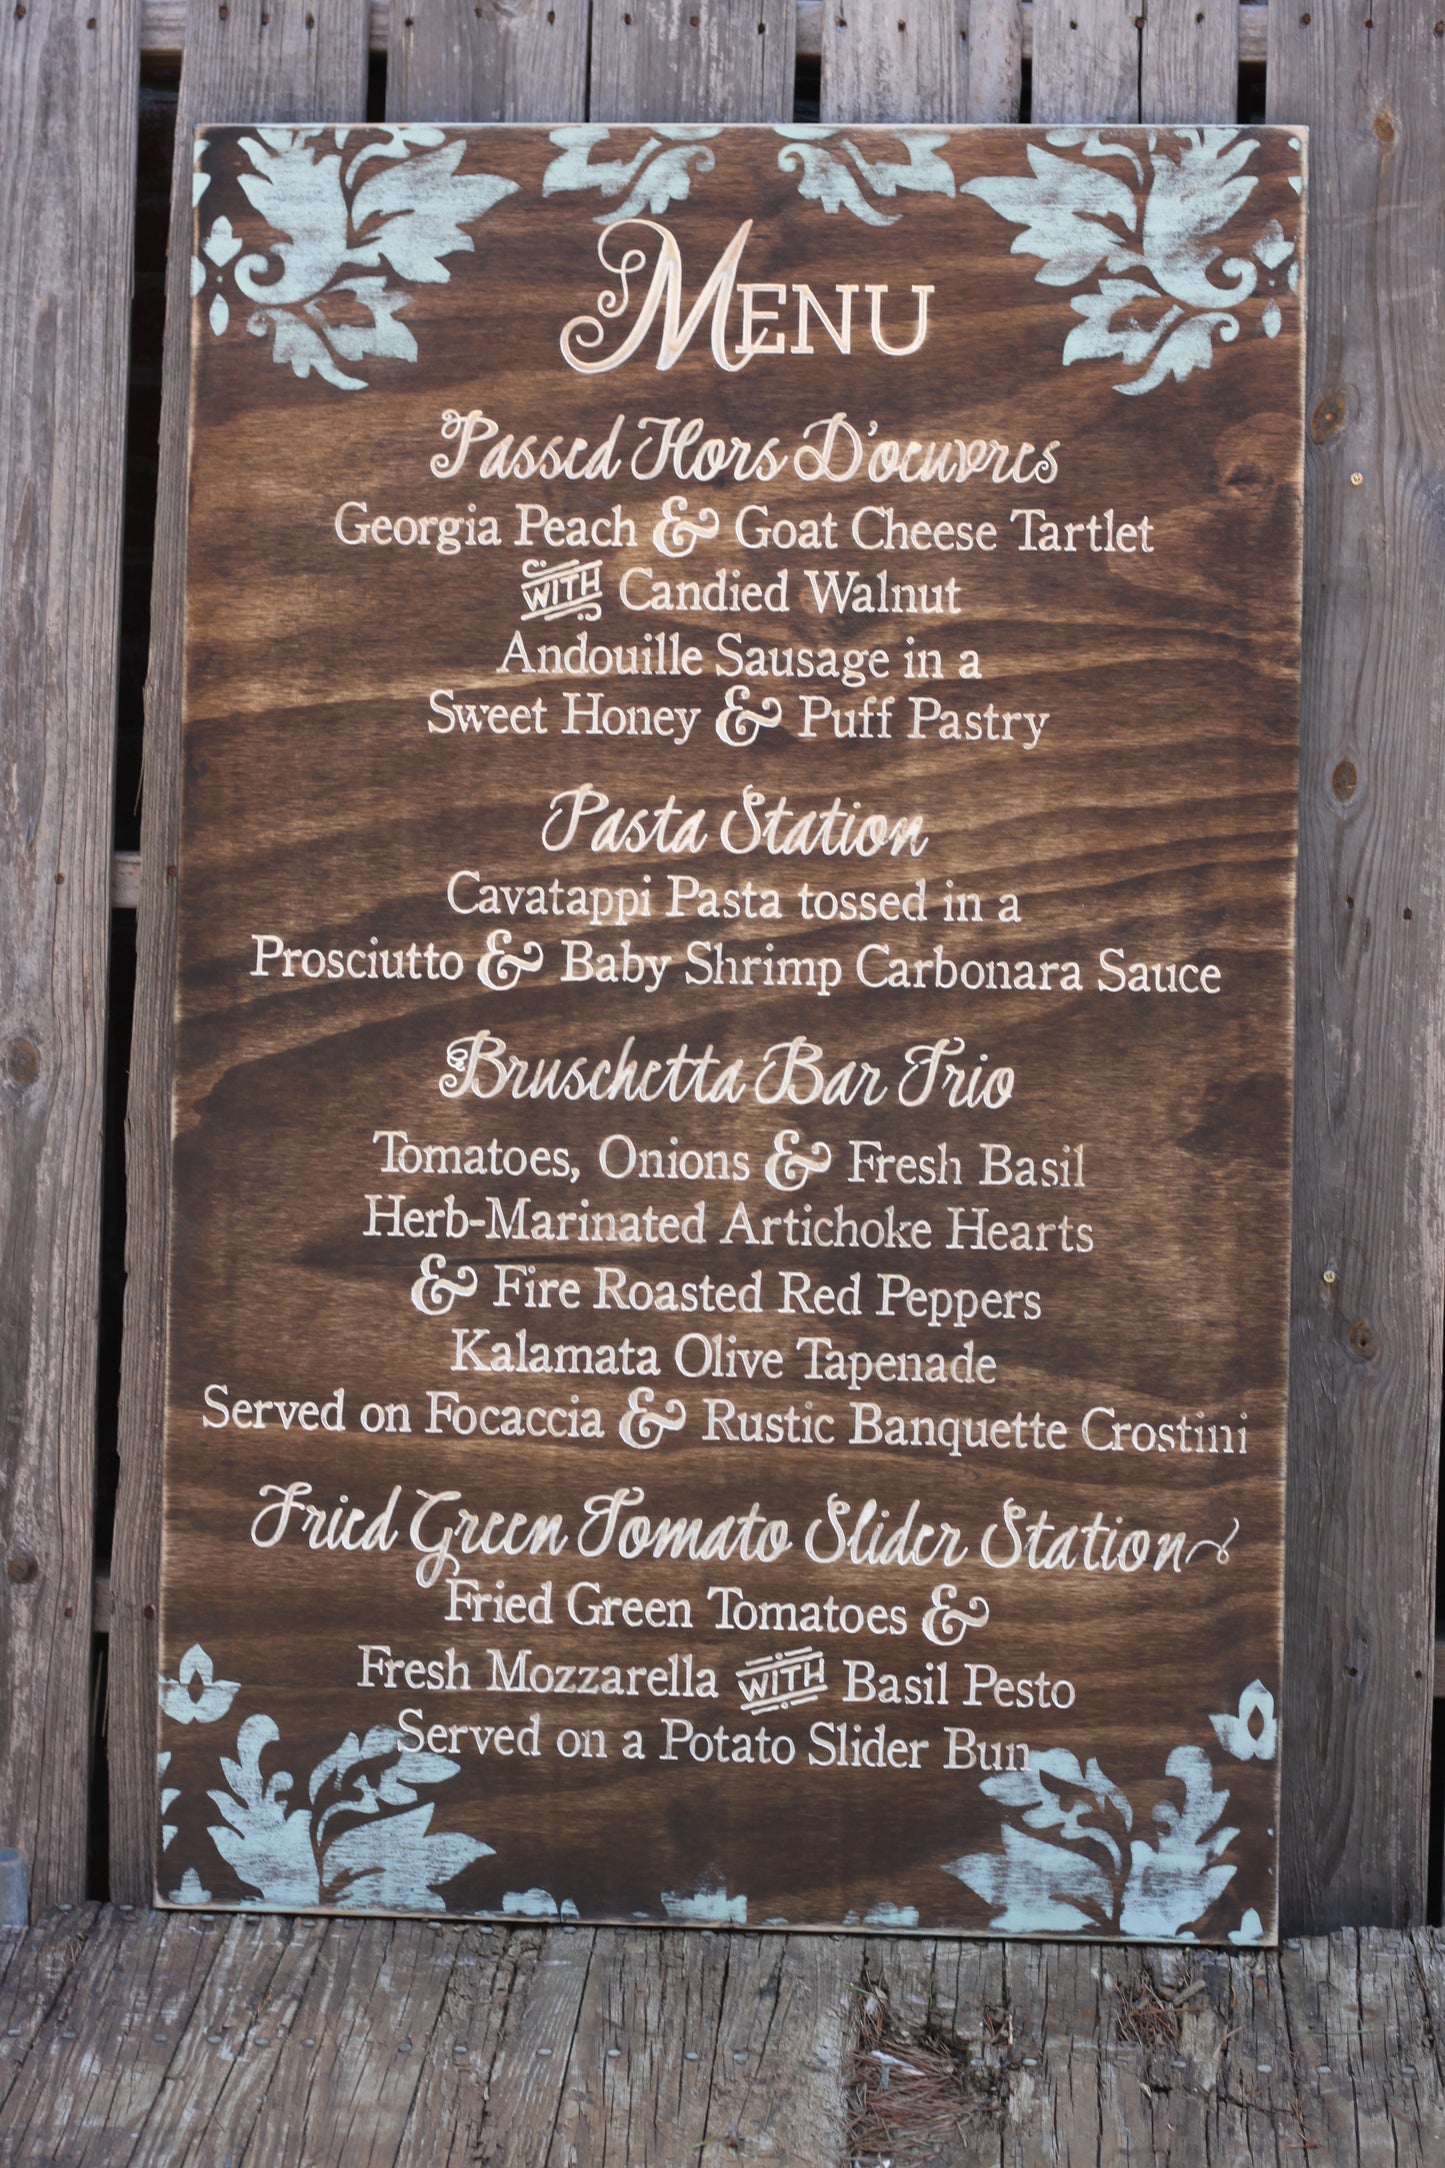 Menu
Passed Hors D'oeuvres
Georgia Peach & Goat Cheese Tartlet
WITH Candied Walnut
Andouille Sausage in a
Sweet Honey & Puff Pastry
Pasta Station
Cavatappi Pasta tossed in a
Prosciutto & Baby Shrimp Carbonara Sauce
Bruschetta Bar Trio
Tomatoes, Onions & Fresh Basil
Herb-Marinated Artichoke Hearts
& Fire Roasted Red Peppers
Kalamata Olive Tapenade
Served on Focaccia & Rustic Banquette Crostini
Fried Green Tomato Slider Station
Fried Green Tomatoes &
Fresh Mozzarella WITH Basil Pesto
Served on a Potato Slider Bun